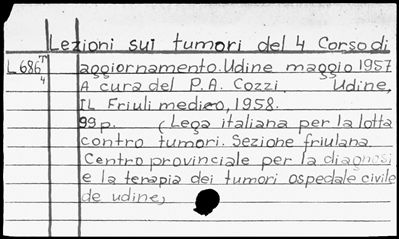 Lezioni sui tumori del 4 Corso di
L 686 T/4 aggiornamento. Udine maggio 1957
A cura del P.A. Cozzi. Udine,
IL Friuli medico, 1958.
99 p. (Lega italiana per la lotta
contro tumori. Sezione friulana.
Centro provinciale per la diagnosi
e la terapia dei tumori ospedale civile
de udine)